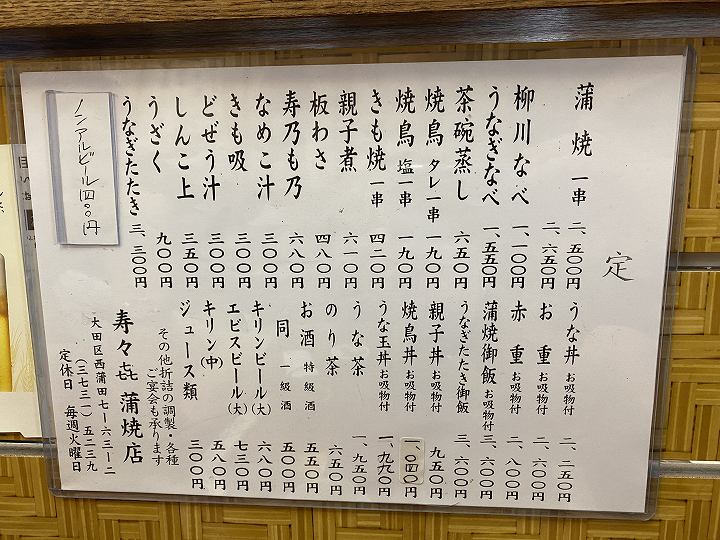 定
蒲焼 一串 二、五〇〇円
二、六五〇円
柳川なべ 一、一〇〇円
うなぎなべ 一、五五〇円
茶碗蒸し 六五〇円
焼鳥 タレ一串 一九〇円
焼鳥 塩一串 一九〇円
きも焼 一串 四二〇円
親子煮 六一〇円
板わさ 四八〇円
寿乃も乃 六八〇円
なめこ汁 三〇〇円
きも吸 三〇〇円
どぜう汁 三〇〇円
しんこ上 三五〇円
うざく 九〇〇円
うなぎたたき 三、三〇〇円
ノンアルビール 四〇〇円
うな丼 お吸物付 二、二五〇円
お重 お吸物付 二、六〇〇円
赤重 お吸物付 二、八〇〇円
蒲焼御飯 お吸物付 三、六〇〇円
うなぎたたき御飯 三、六〇〇円
親子丼 お吸物付 九五〇円
焼鳥丼 お吸物付 一、〇四〇円
うな玉丼 お吸物付 一、九九〇円
うな茶 一、九五〇円
のり茶 六五〇円
お酒 特級酒 五五〇円
同 一級酒 五〇〇円
キリンビール(大) 六八〇円
エビスビール(大) 七三〇円
キリン(中) 五八〇円
ジュース類 三〇〇円
その他折詰の調製・各種
ご宴会も承ります
寿々㐂 蒲焼店
大田区西蒲田七ー六三ー二
(三七三一)五二三九
定休日 毎週火曜日